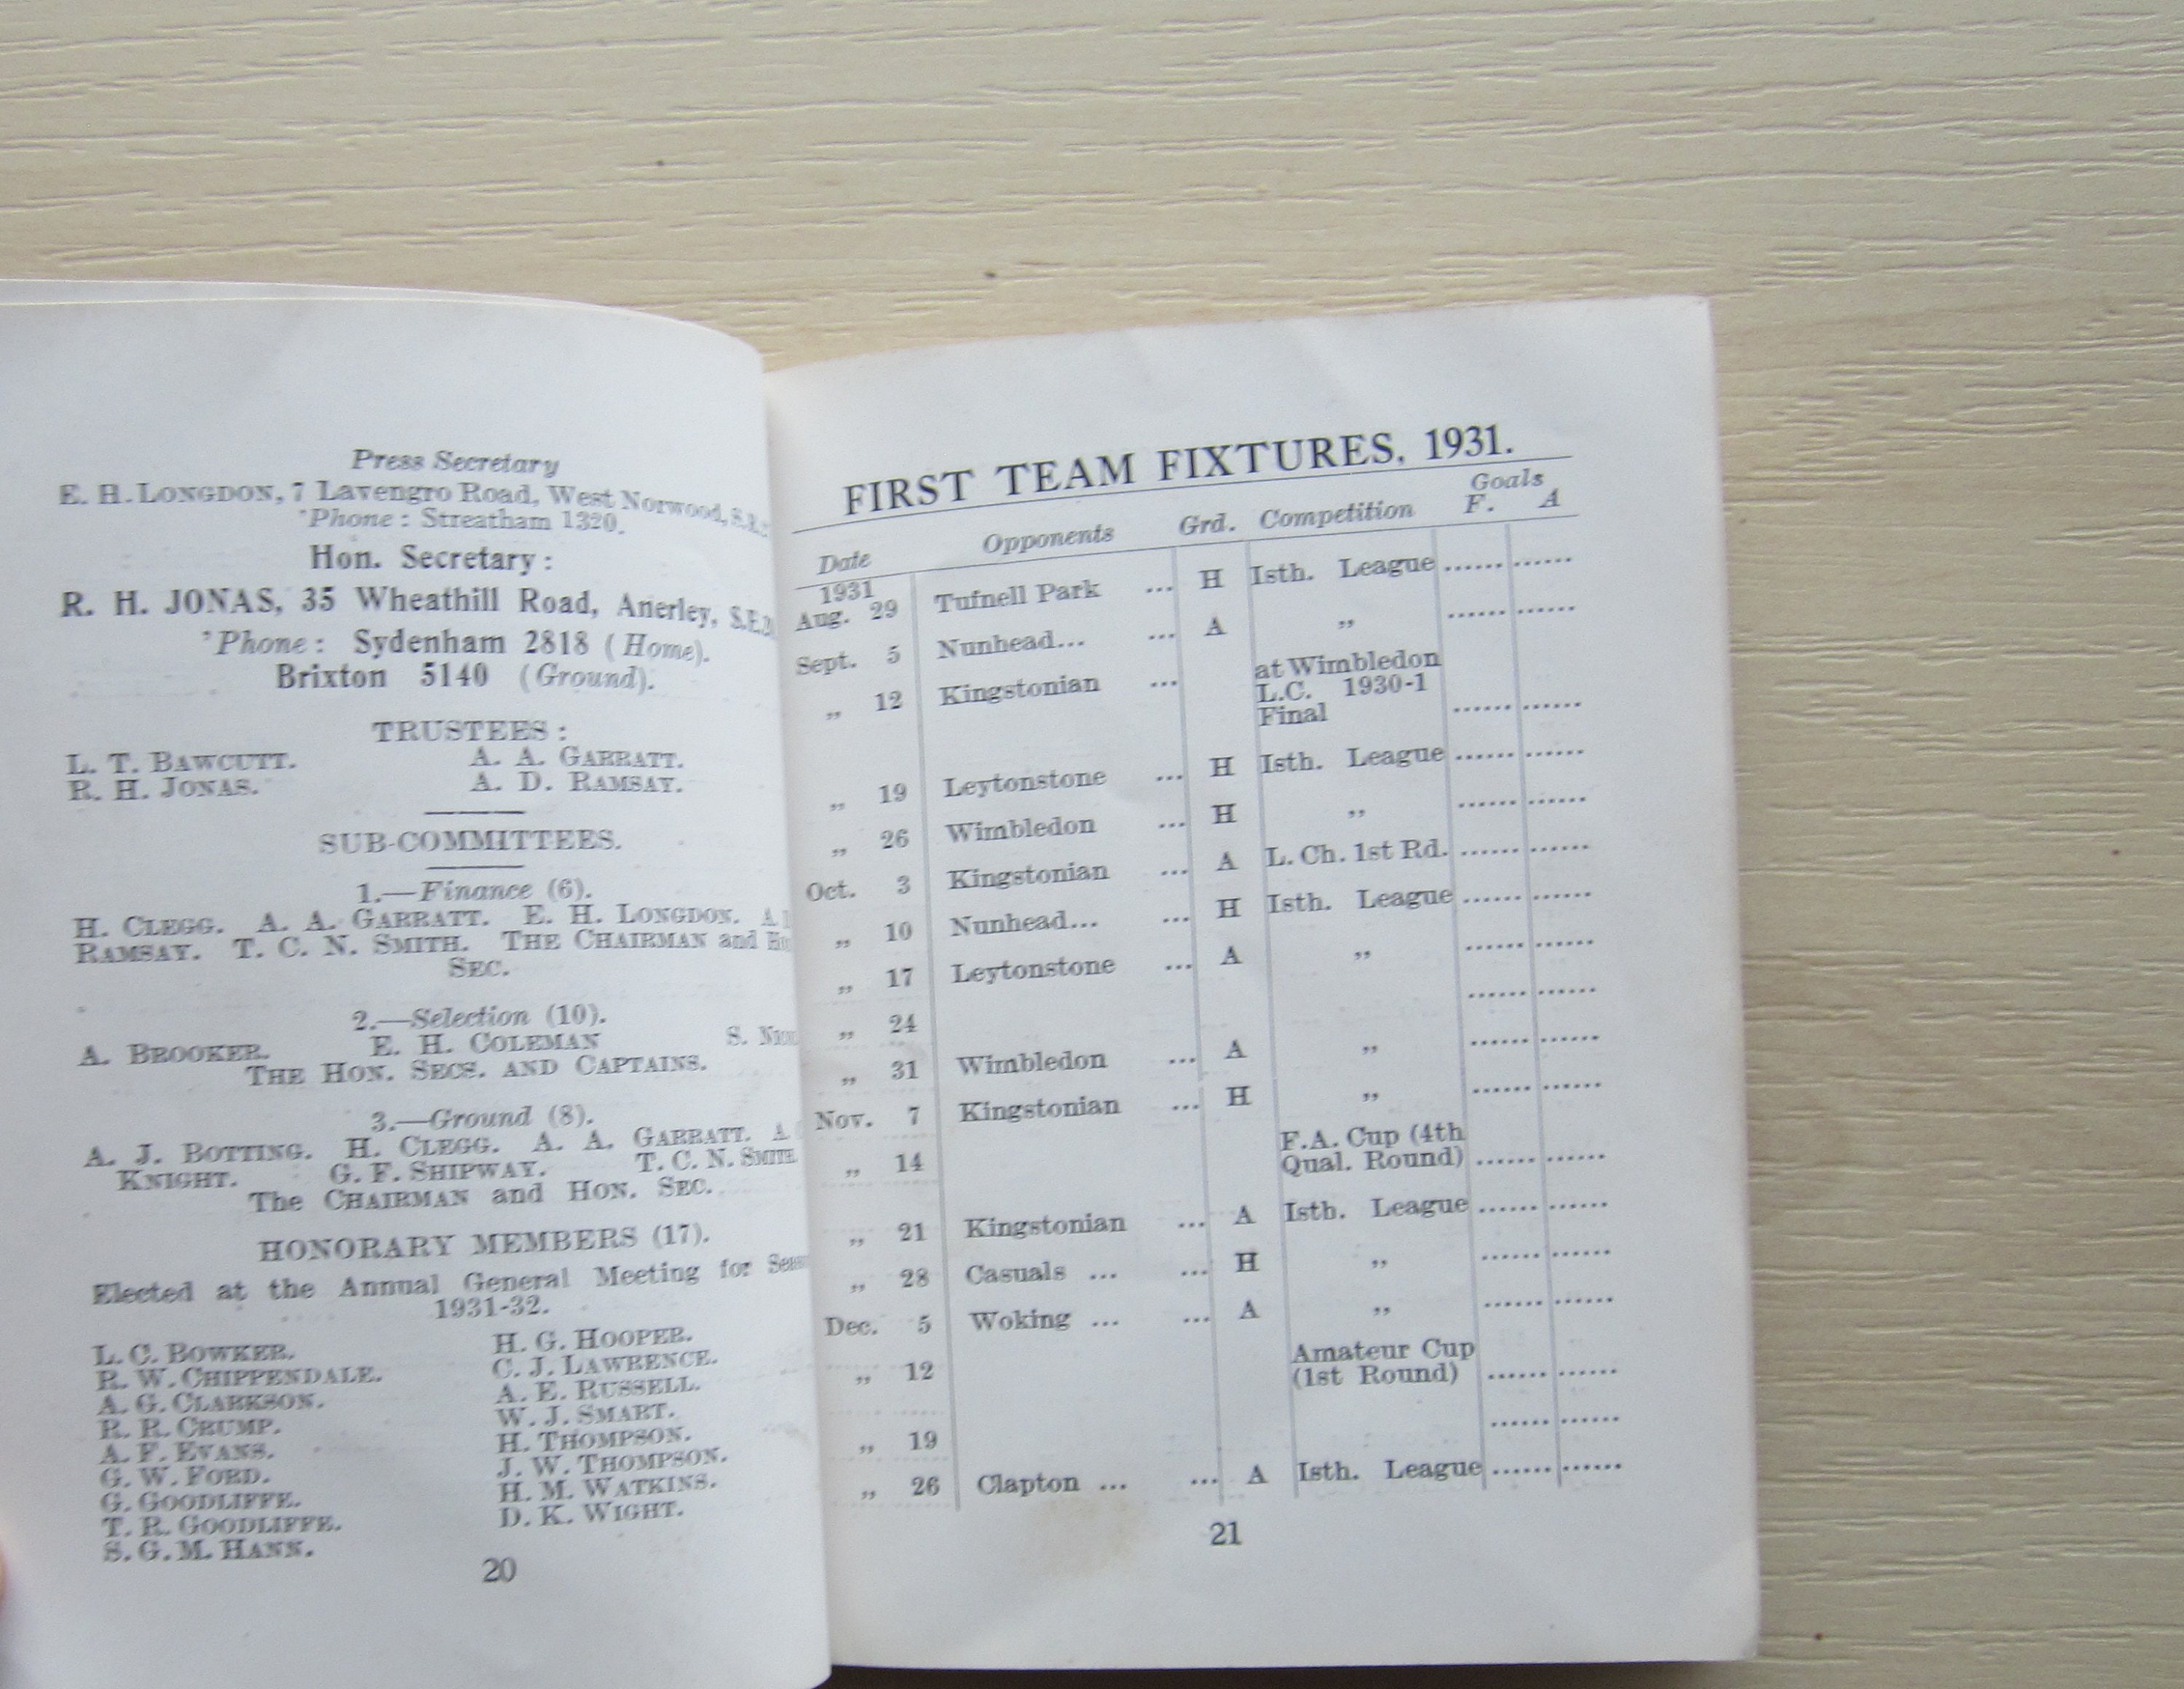 Press Secretary
E. H. LONGDON, 7 Lavengro Road, West Norwood,
'Phone : Streatham 1320.
Hon. Secretary :
R. H. JONAS, 35 Wheathill Road, Anerley,
'Phone : Sydenham 2818 (Home).
Brixton 5140 (Ground).
TRUSTEES :
L. T. BAWCUTT. A. A. GARRATT.
R. H. JONAS. A. D. RAMSAY.
SUB-COMMITTEES.
1.—Finance (6).
H. CLEGG. A. A. GARRATT. E. H. LONGDON. A.
RAMSAY. T. C. N. SMITH. THE CHAIRMAN and
SEC.
2.—Selection (10).
A. BROOKER. E. H. COLEMAN S.
THE HON. SECS. AND CAPTAINS.
3.—Ground (8).
A. J. BOTTING. H. CLEGG. A. A. GARRATT. A.
KNIGHT. G. F. SHIPWAY. T. C. N. SMITH
The CHAIRMAN and HON. SEC.
HONORARY MEMBERS (17).
Elected at the Annual General Meeting for
1931-32.
L. C. BOWKER. H. G. HOOPER.
R. W. CHIPPENDALE. C. J. LAWRENCE.
A. G. CLARKSON. A. E. RUSSELL.
R. R. CRUMP. W. J. SMART.
A. F. EVANS. H. THOMPSON.
G. W. FORD. J. W. THOMPSON.
G. GOODLIFFE. H. M. WATKINS.
T. R. GOODLIFFE. D. K. WIGHT.
S. G. M. HANN.
20
FIRST TEAM FIXTURES, 1931.
Goals
Date Opponents Grd. Competition F. A
1931
Aug. 29 Tufnell Park ... H Isth. League ...... ......
Sept. 5 Nunhead... ... A ,, ...... ......
,, 12 Kingstonian ... at Wimbledon
L.C. 1930-1
Final ...... ......
,, 19 Leytonstone ... H Isth. League ...... ......
,, 26 Wimbledon ... H ,, ...... ......
Oct. 3 Kingstonian ... A L. Ch. 1st Rd. ...... ......
,, 10 Nunhead... ... H Isth. League ...... ......
,, 17 Leytonstone ... A ,, ...... ......
,, 24 ...... ......
,, 31 Wimbledon ... A ,, ...... ......
Nov. 7 Kingstonian ... H ,, ...... ......
,, 14 F.A. Cup (4th
Qual. Round) ...... ......
,, 21 Kingstonian ... A Isth. League ...... ......
,, 28 Casuals ... ... H ,, ...... ......
Dec. 5 Woking ... ... A ,, ...... ......
,, 12 Amateur Cup
(1st Round) ...... ......
,, 19 ...... ......
,, 26 Clapton ... ... A Isth. League ...... ......
21